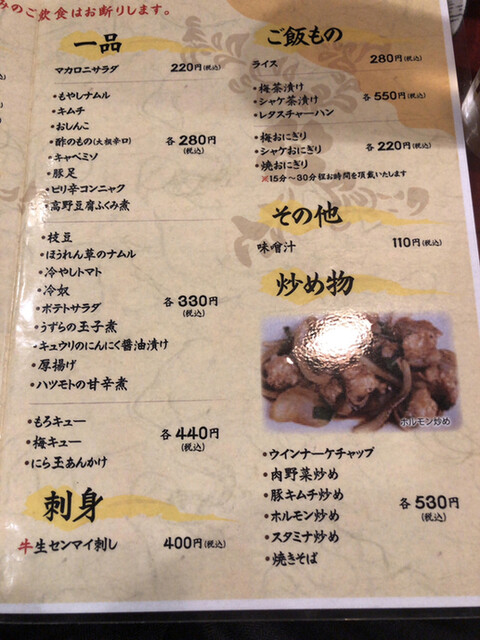 みのご飲食はお断りします。
一品
マカロニサラダ 220円(税込)
・もやしナムル
・キムチ
・おしんこ
・酢のもの(大根辛口) 各280円(税込)
・キャベミソ
・豚足
・ピリ辛コンニャク
・高野豆腐ふくみ煮
・枝豆
・ほうれん草のナムル
・冷やしトマト
・冷奴
・ポテトサラダ 各330円(税込)
・うずらの玉子煮
・キュウリのにんにく醤油漬け
・厚揚げ
・ハツモトの甘辛煮
・もろキュー
・梅キュー 各440円(税込)
・にら玉あんかけ
刺身
牛生センマイ刺し 400円(税込)
ご飯もの
ライス 280円(税込)
・梅茶漬け
・シャケ茶漬け 各550円(税込)
・レタスチャーハン
・梅おにぎり
・シャケおにぎり 各220円(税込)
・焼おにぎり
※15分〜30分程お時間を頂戴いたします
その他
味噌汁 110円(税込)
炒め物
ホルモン炒め
・ウインナーケチャップ
・肉野菜炒め
・豚キムチ炒め
・ホルモン炒め 各530円(税込)
・スタミナ炒め
・焼きそば